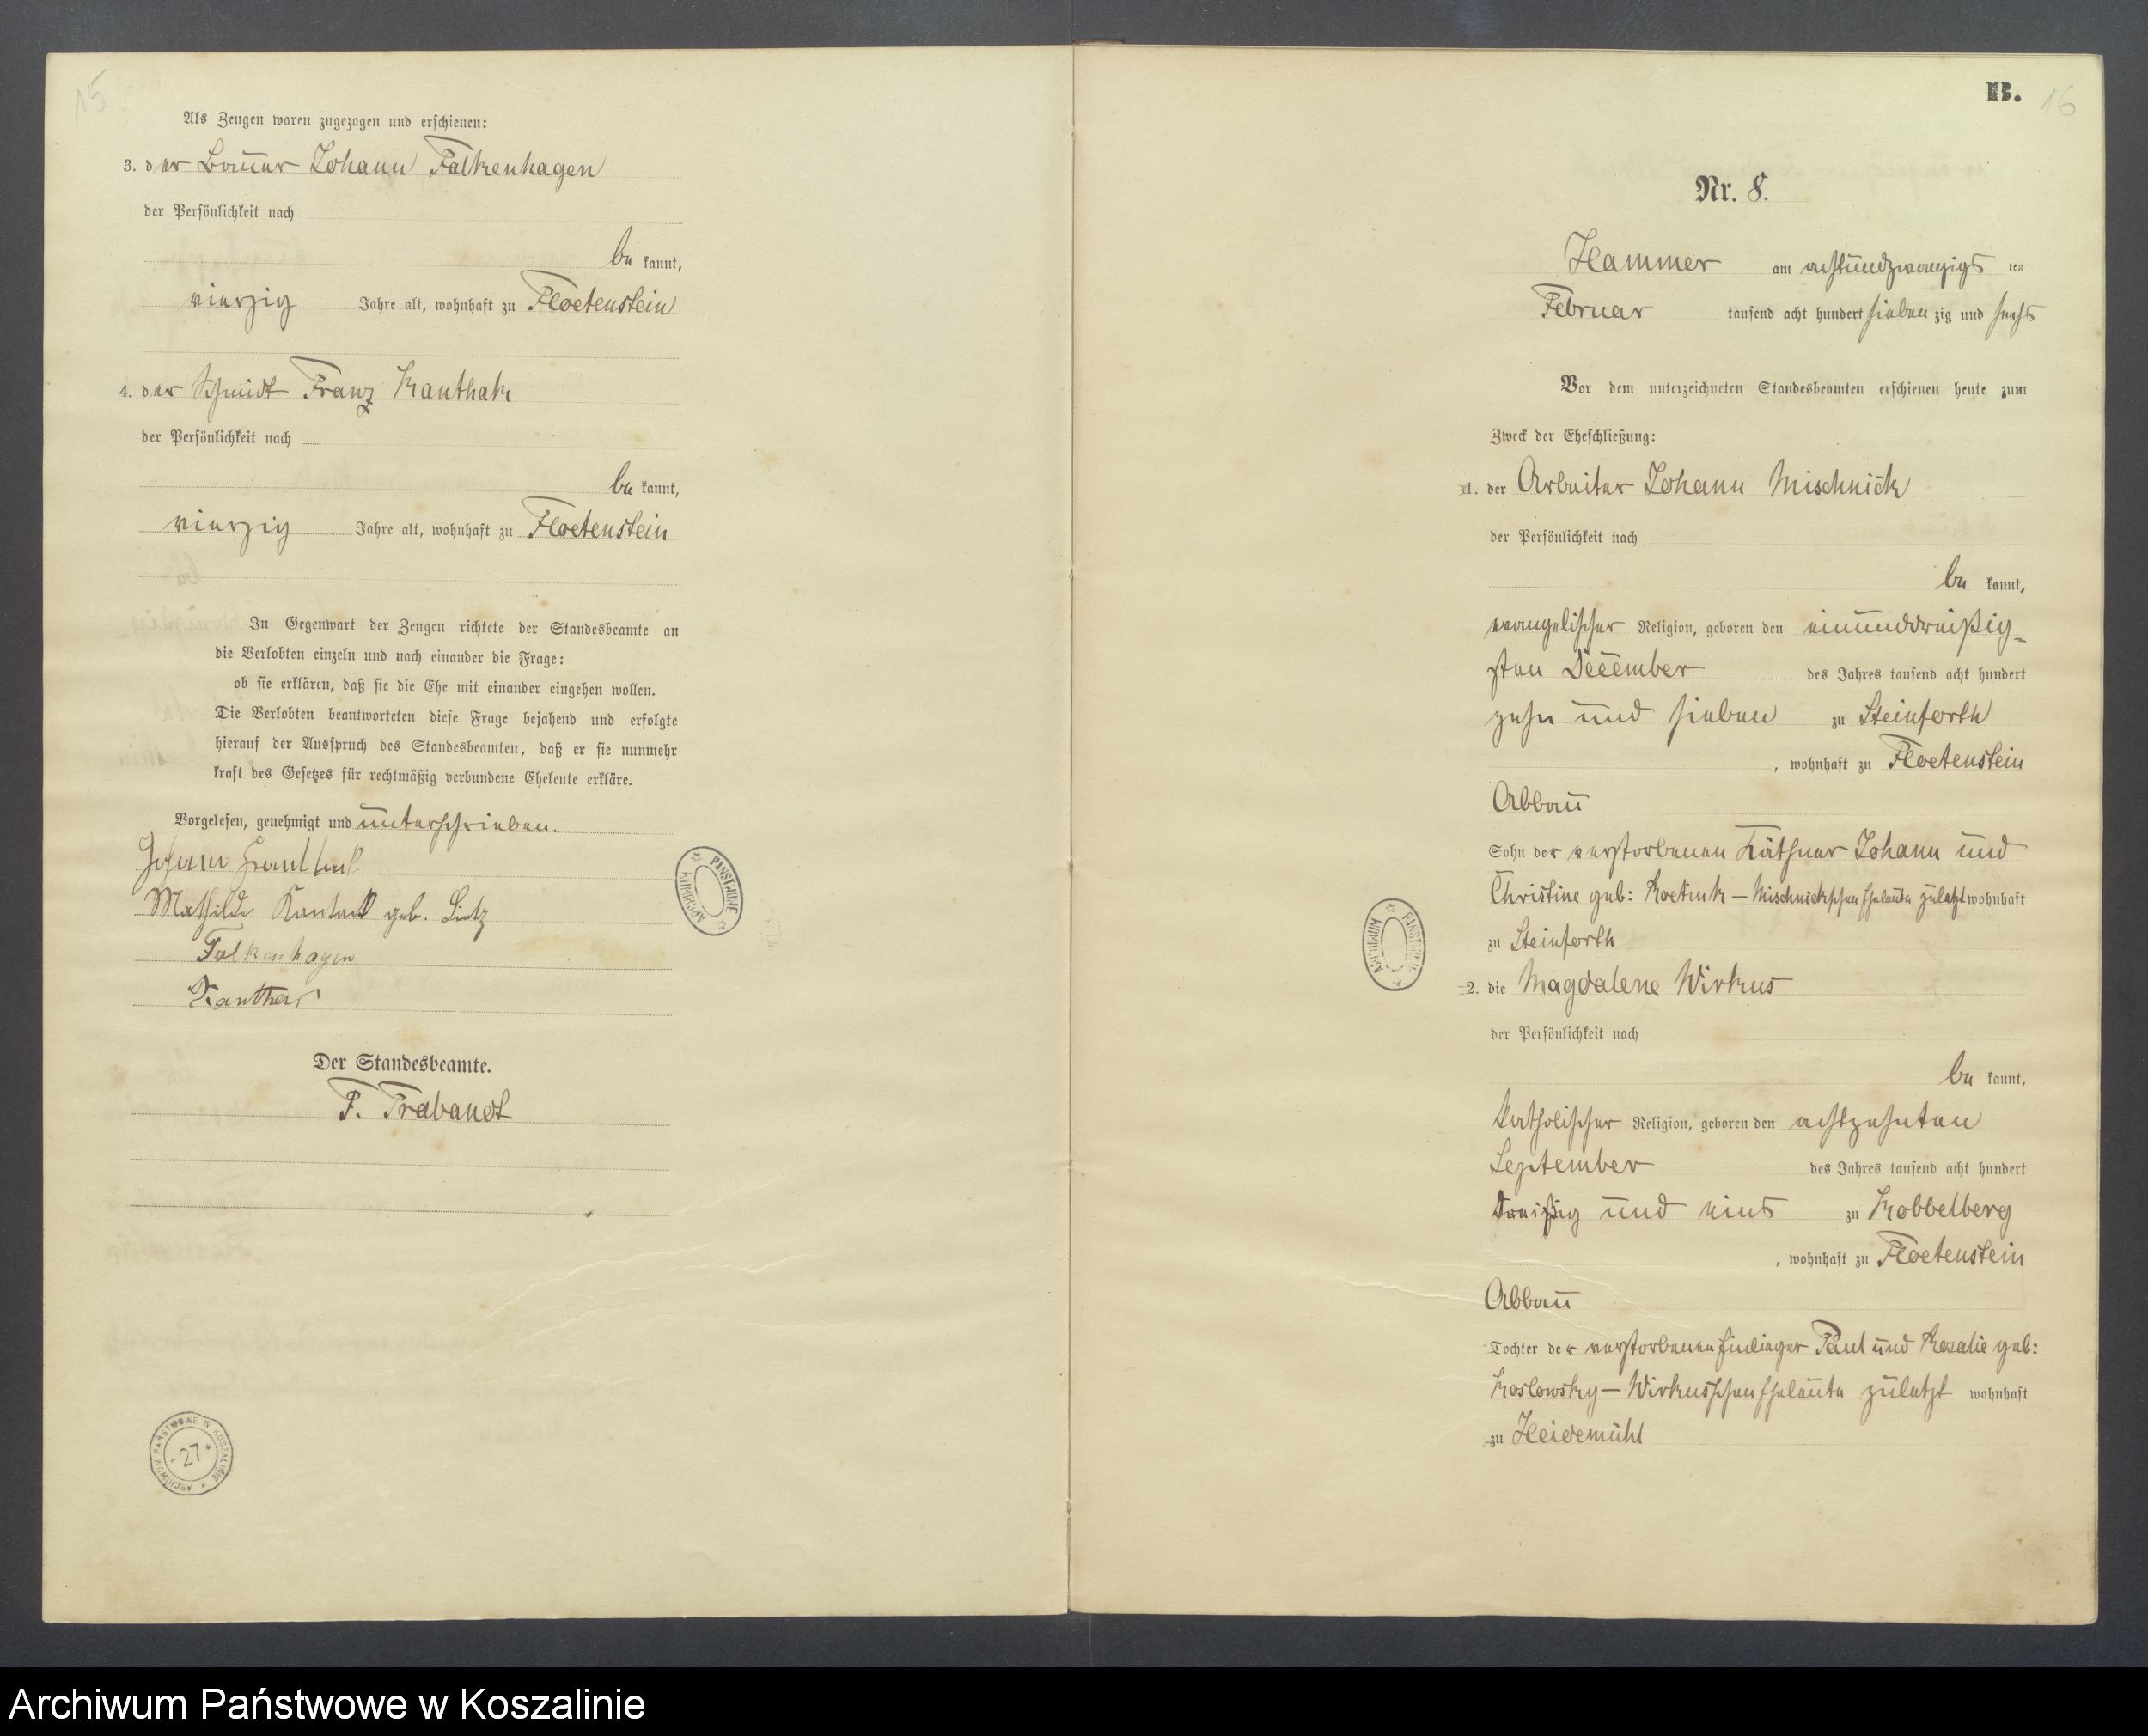 15
Als Zeugen waren zugezogen und erschienen:
3. der Bauer Johann Falkenhagen
der Persönlichkeit nach
be kannt,
vierzig Jahre alt, wohnhaft zu Floetenstein
4. der Schmidt Franz Kanthak
der Persönlichkeit nach
be kannt,
vierzig Jahre alt, wohnhaft zu Floetenstein
In Gegenwart der Zeugen richtete der Standesbeamte an
die Verlobten einzeln und nach einander die Frage:
ob sie erklären, daß sie die Ehe mit einander eingehen wollen.
Die Verlobten beantworteten diese Frage bejahend und erfolgte
hierauf der Ausspruch des Standesbeamten, daß er sie nunmehr
kraft des Gesetzes für rechtmäßig verbundene Eheleute erkläre.
Vorgelesen, genehmigt und unterschrieben.
Johann
Mathilde Kantack geb.
Falkenhagen
Der Standesbeamte.
F. Trabandt
ARCHIWUM PAŃSTWOWE
ARCHIWUM PAŃSTWOWE W KOSZALINIE
27
B. 16
Nr. 8.
Hammer am achtundzwanzigs ten
Februar tausend acht hundert sieben zig und sechs
Vor dem unterzeichneten Standesbeamten erschienen heute zum
Zweck der Eheschließung:
1. der Arbeiter Johann Mischnick
der Persönlichkeit nach
be kannt,
evangelischer Religion, geboren den einunddreißig-
sten December des Jahres tausend acht hundert
zehn und sieben zu Steinforth
, wohnhaft zu Floetenstein
Abbau
Sohn der verstorbenen Käthner Johann und
Christine geb: Koetink – Mischnickschen Eheleute zuletzt wohnhaft
zu Steinforth
2. die Magdalene Wirkus
der Persönlichkeit nach
be kannt,
katholischer Religion, geboren den achtzehnten
September des Jahres tausend acht hundert
dreißig und eins zu Kobbelberg
, wohnhaft zu Floetenstein
Abbau
Tochter der verstorbenen Einlieger Paul und Rosalie geb:
Koslowsky – Wirkusschen Eheleute zuletzt wohnhaft
zu Heidemühl
ARCHIWUM PAŃSTWOWE
Archiwum Państwowe w Koszalinie